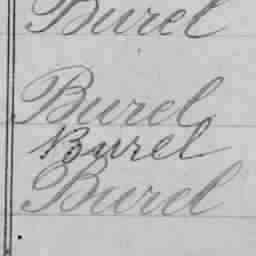 Burel
Burel
Burel
Burel